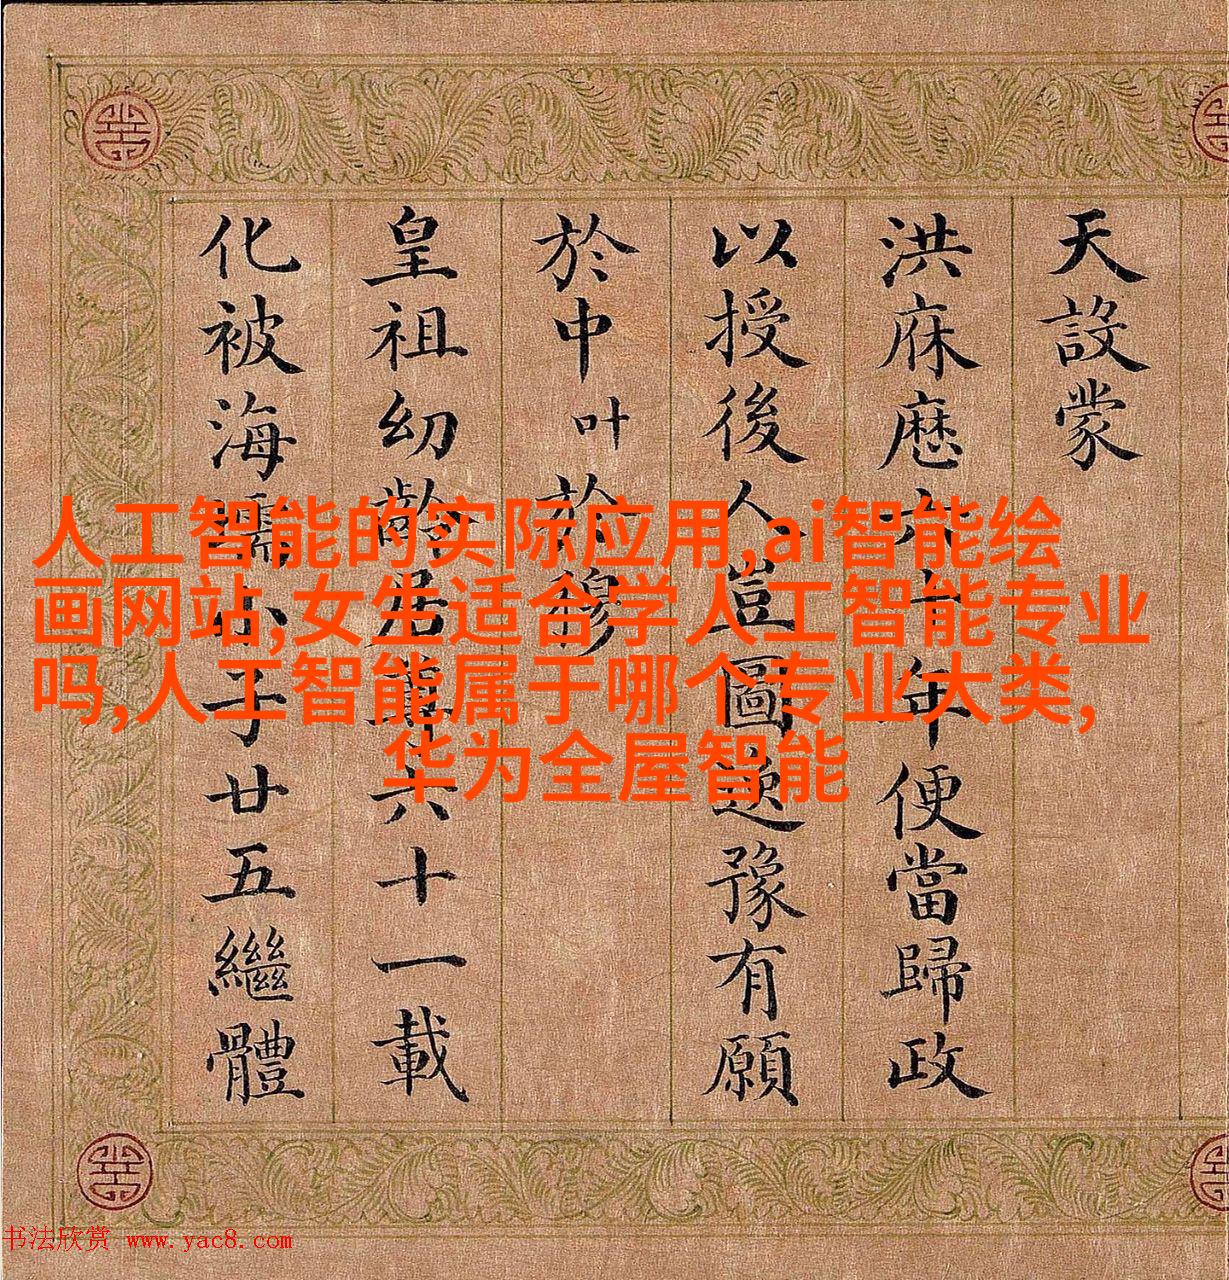 天設蒙
洪庥歷六十年便當歸政
以授後人豈圖逸豫有願
於中叶於穆
皇祖幼齡居尊六十一載
化被海壖小子廿五繼體
人工智能的实际应用,ai智能绘
画网站,女生适合学人工智能专业
吗,人工智能属于哪个专业大类,
华为全屋智能
书法欣赏 www.yac8.com